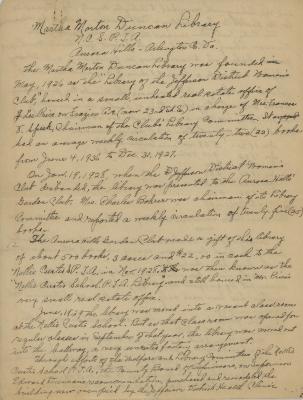 Martha Morton Duncan Library
N.C.S. P.T.A.
Aurora Hills - Arlington Co. Va.
The Martha Morton Duncan Library was founded in
May, 1926 as the "Library of the Jefferson District Woman's
Club", housed in a small unheated real estate office of
(now 23rd St. S.) in charge of Mrs. Frances
Chairman of the Club's Library Committee. It
had an average weekly circulation of twenty-two (22) books
from June 4, 1926 to Dec. 31, 1927.
On Jan. 19, 1928, when the Jefferson District Woman's
Club disbanded, the library was presented to the Aurora Hills
Garden Club. Mrs. Charles was chairman of its Library
Committee and reported a weekly circulation of twenty five (25)
books.
The Aurora Hills Garden Club made a gift of this library
of about 500 books, 3 cases and $22.00 in cash to the
Nellie Custis P.T.A. in Nov. 1928. It was then known as the
Nellie Custis School P.T.A. Library and still housed in
very small real estate office.
1929 the library was moved into a vacant classroom
at the Nellie Custis School. But as that classroom was opened for
regular classes in September of that year, the library was moved out
into the hallway, a very unsatisfactory arrangement.
Through efforts of the Welfare and Library Committee of the Nellie
Custis School P.T.A., the County Board of Supervisors, on Supervisor
Edward Duncan's recommendation, purchased and remodeled the
building now occupied by the Jefferson District Health Clinic